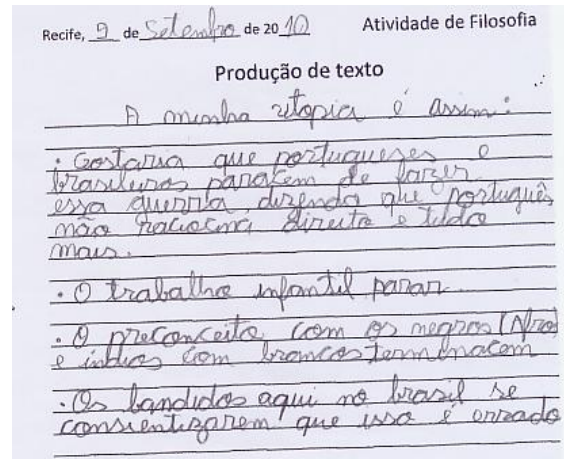 Recife, 9 de Setembro de 2010 Atividade de Filosofia
Produção de texto
A minha utopia é assim:
• Gostaria que portugueses e
brasileiros paracem de fazer
essa guerria, dizendo que português
não raciocina direito e tudo
mais.
• O trabalho infantil parar
• O preconceito com os negros (Afro)
e indios com brancos terminacem
• Os bandidos aqui no brasil se
consientizarem que isso é errado